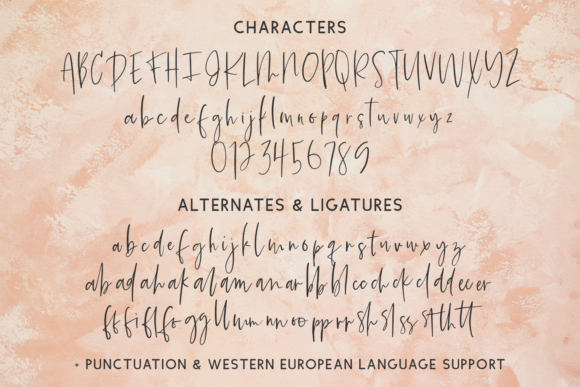 CHARACTERS
ABCDEFGHIJKLMNOPQRSTUVWXYZ
abcdefghijklmnopqrstuvwxyz
0123456789
ALTERNATES & LIGATURES
abcdefghijklmnopqrstuvwxyz
abadahakalamanarbbblcochckclddecer
ftfiflfoggllummnnoopprrshslssstthtt
+ PUNCTUATION & WESTERN EUROPEAN LANGUAGE SUPPORT